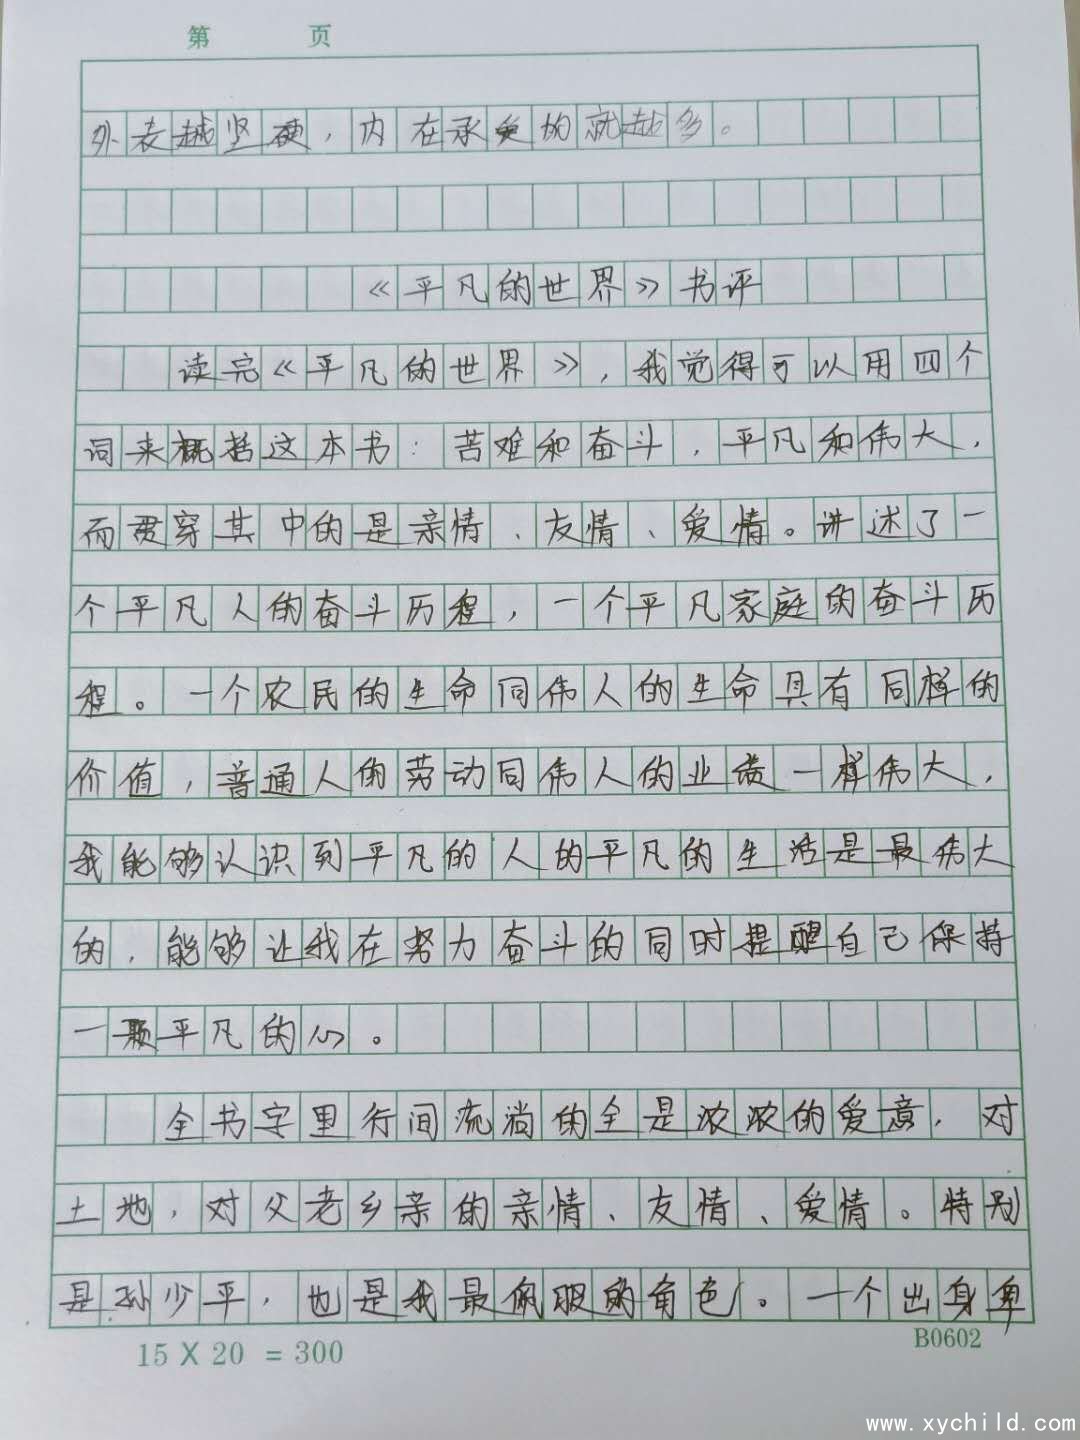 第 页
外表越坚硬，内在承受的就越多。
《平凡的世界》书评
读完《平凡的世界》，我觉得可以用四个
词来概括这本书：苦难和奋斗，平凡和伟大，
而贯穿其中的是亲情、友情、爱情。讲述了一
个平凡人的奋斗历程，一个平凡家庭的奋斗历
程。一个农民的生命同伟人的生命具有同样的
价值，普通人的劳动同伟人的业绩一样伟大，
我能够认识到平凡的人的平凡的生活是最伟大
的，能够让我在努力奋斗的同时提醒自己保持
一颗平凡的心。
全书字里行间流淌的全是浓浓的爱意，对
土地，对父老乡亲的亲情、友情、爱情。特别
是孙少平，也是我最佩服的角色。一个出身卑
15 X 20 = 300
B0602
www.xychild.com